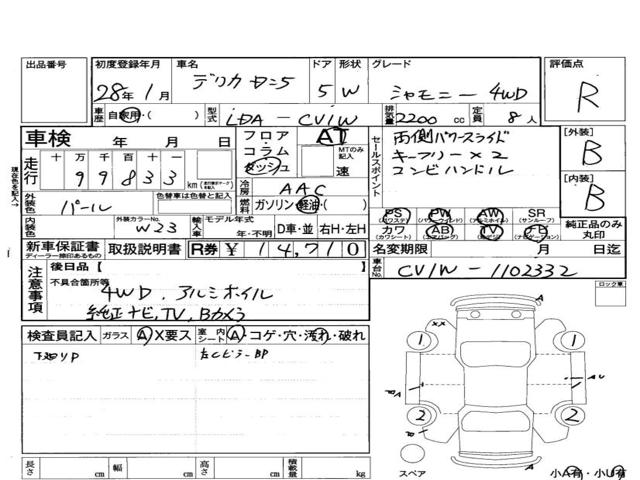 出品番号 初度登録年月 車名 ドア 形状 グレード 評価点
28年1月 デリカD:5 5 W シャモニー 4WD R
車歴 自家用・( ) 型式 LDA-CV1W 排気量 2200 cc 定員 8人
車検 年 月 日 フロア AT セールスポイント 両側パワースライド [外装]
コラム MTのみ記入 キーフリー×2 B
走行 十万千百十一 ダッシュ 速 コンビハンドル
99833 km 冷房 AAC [内装]
外装色 パール 色替車は色替と記入 燃料 ガソリン・軽油・( ) B
PS (パワステ) PW (パワーウィンド) AW (アルミホイル) SR (サンルーフ)
内装色 外装カラーNo. W23 輸入車 モデル年式 年・不明 D車・並 右H・左H カワ (カワシート) AB (エアバッグ) TV (テレビ) ナビ (ナビゲーション) 純正品のみ丸印
新車保証書 ディーラー捺印あるもの 取扱説明書 R券 ¥14,710 名変期限 月 日迄
注意事項 後日品【 】 車台No. CV1W-1102332
不具合箇所等 ロック車
4WD、アルミホイル
純正ナビ,TV,Bカメラ
検査員記入 ガラス A X要ス 室内シート A・コゲ・穴・汚れ・破れ
下廻りP
現在色を記入→
A
1 XX 1
A AU
2 2
A
長さ cm 幅 cm 高さ cm 積載量 kg スペア 小A有・小U有